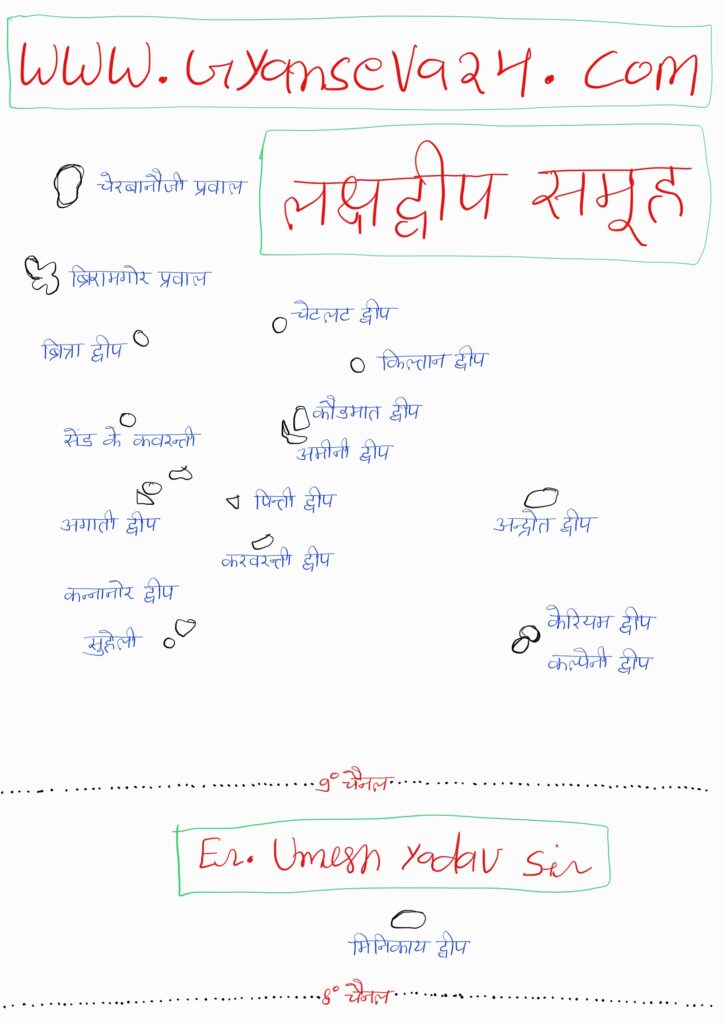 www.Gyanseva24.com
लक्षद्वीप समूह
चेरबानौजी प्रवाल
बिरामगोर प्रवाल
चेटलट द्वीप
बित्रा द्वीप
किल्तान द्वीप
कौडमात द्वीप
सेंड के कवरन्ती
अमीनी द्वीप
पिन्ती द्वीप
अगाती द्वीप
अन्द्रोत द्वीप
करवरन्ती द्वीप
कन्नानोर द्वीप
केरियम द्वीप
सुहेली
कल्पेनी द्वीप
9° चैनल
Er. Umesh Yadav Sir
मिनिकाय द्वीप
8° चैनल